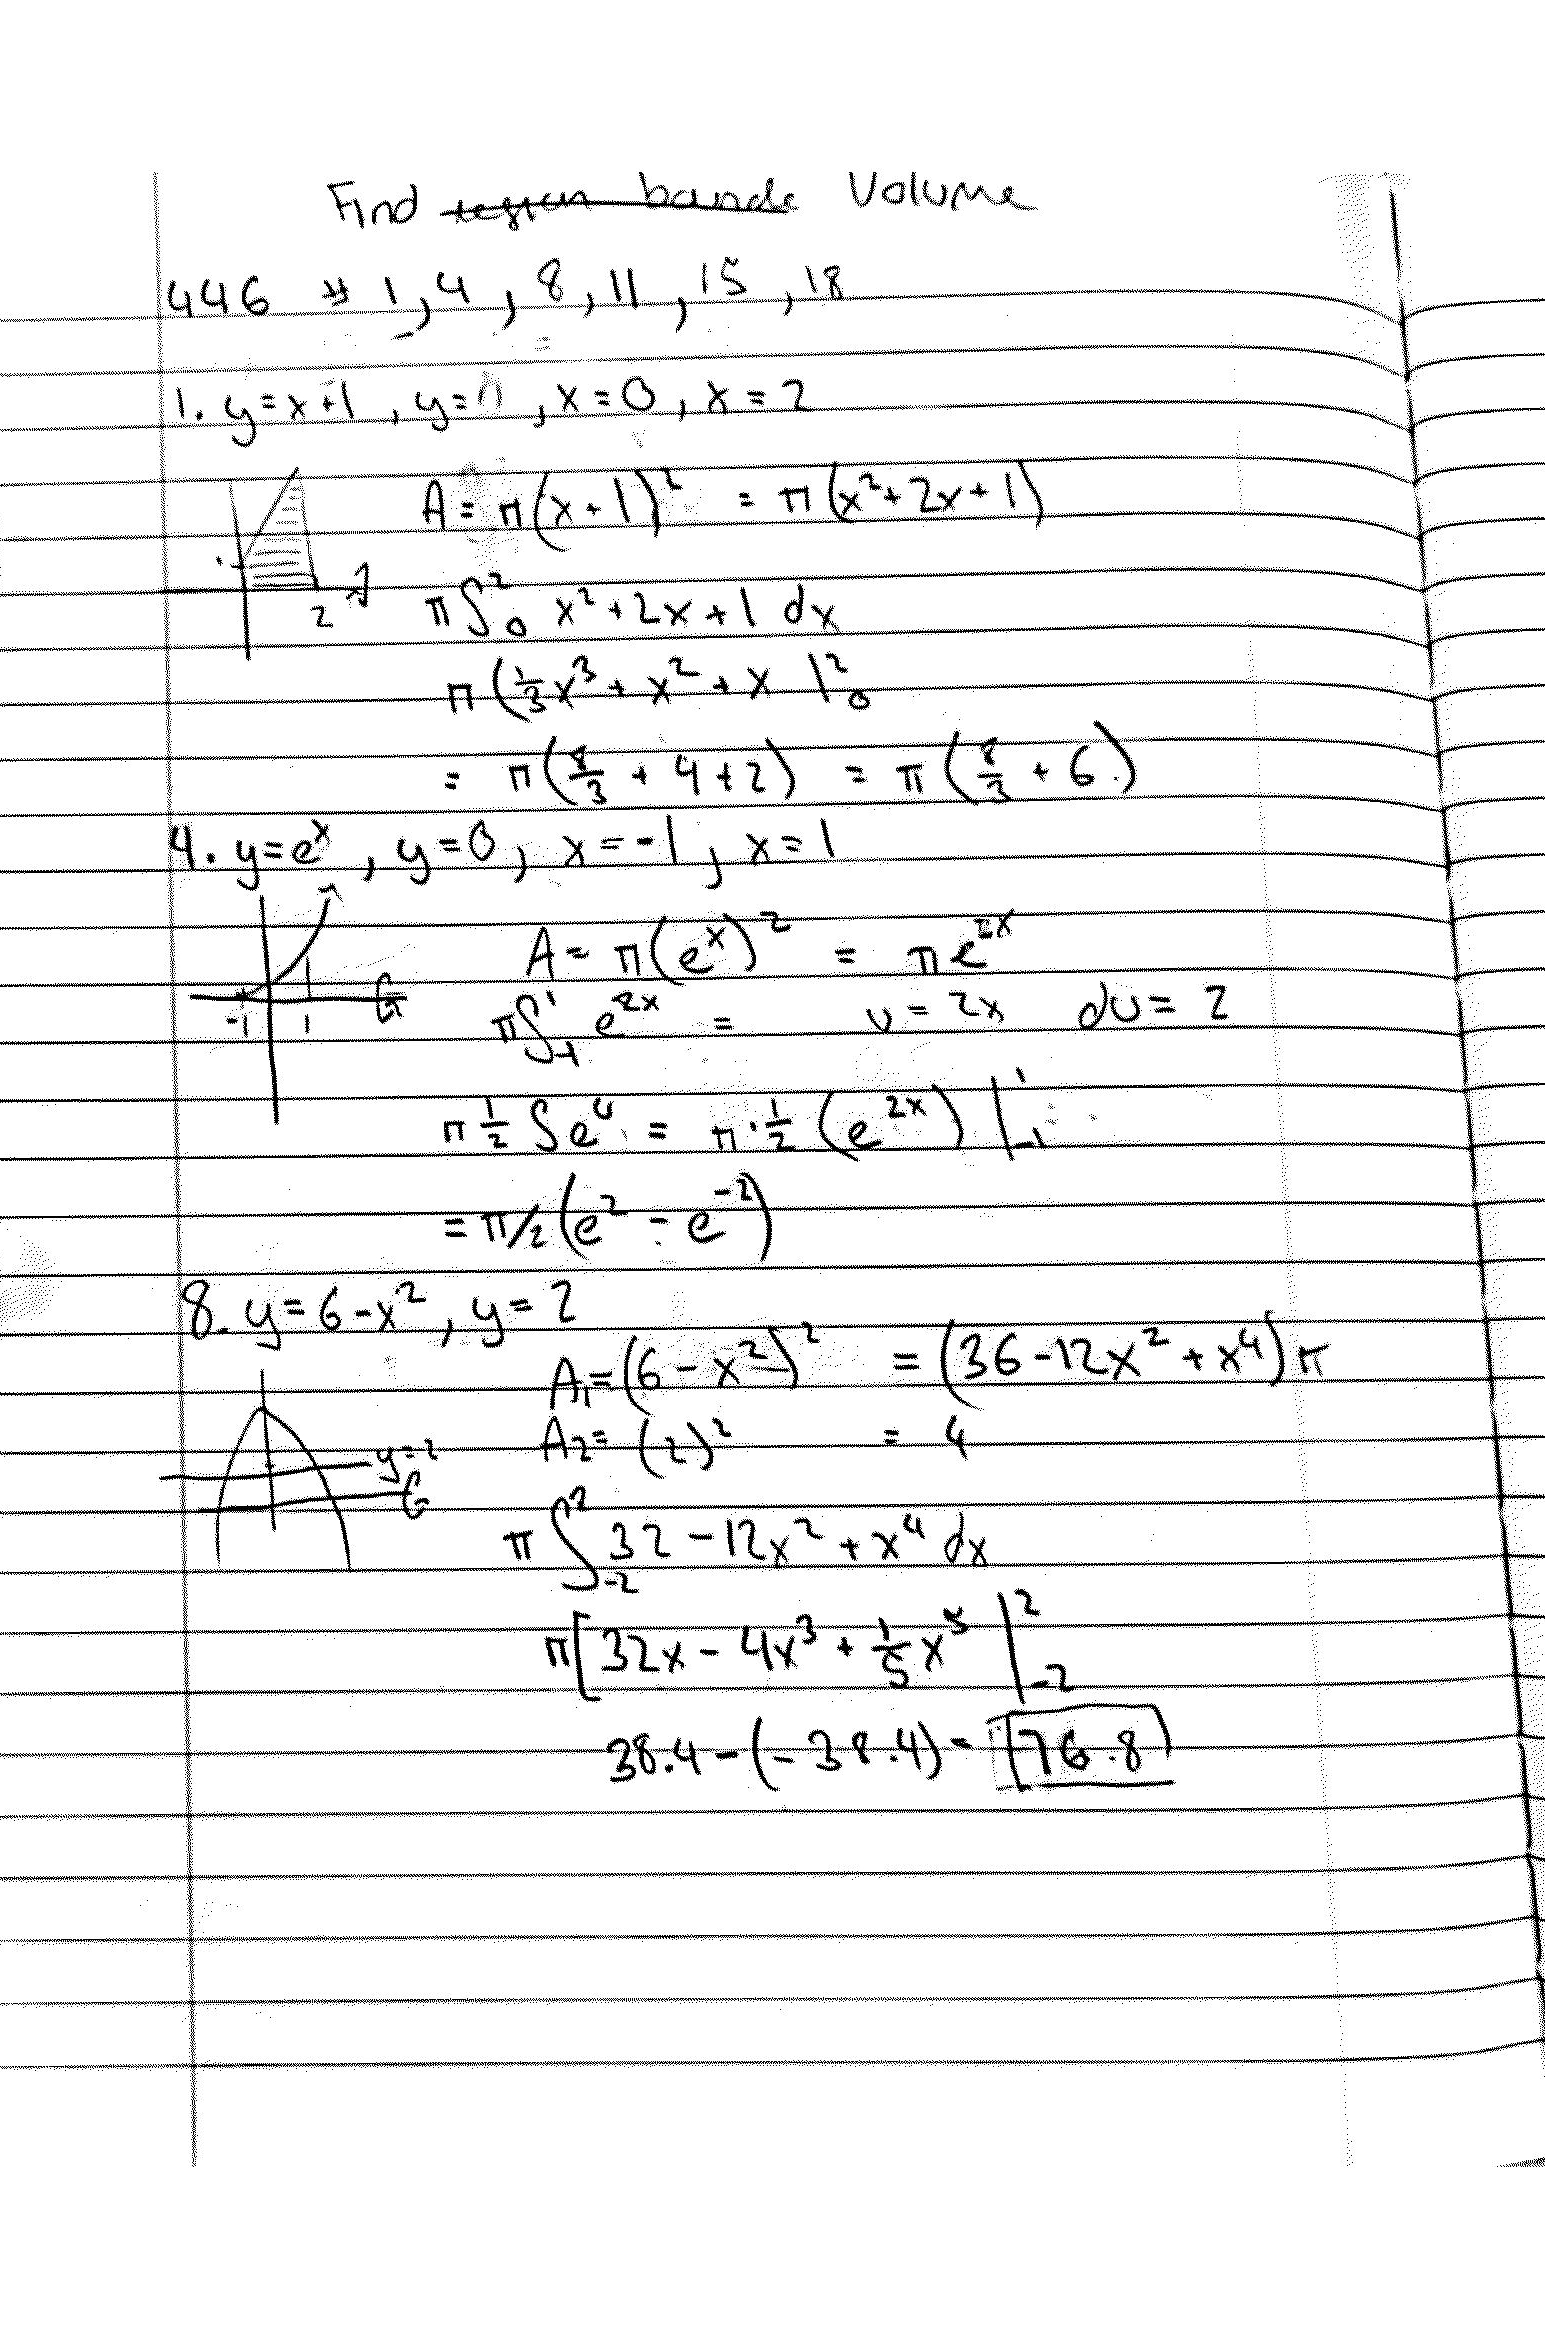 Find region bounde Volume
446 # 1, 4, 8, 11, 15, 18
1. y=x+1, y=0, x=0, x=2
A = π(x+1)² = π(x²+2x+1)
2
π∫²₀ x²+2x+1 dx
π(⅓x³ + x² + x |²₀
= π(8/3 + 4+2) = π(8/3 + 6)
4. y=eˣ, y=0, x=-1, x=1
A = π(eˣ)² = πe²ˣ
-1 1
π∫¹₋₁ e²ˣ = u = 2x du = 2
π ½ ∫eᵘ = π·½(e²ˣ)|¹₋₁
= π/2(e² - e⁻²)
8. y=6-x², y=2
A₁=(6-x²)² = (36-12x²+x⁴)π
y=2
A₂= (2)² = 4
π∫²₋₂ 32-12x²+x⁴ dx
π[32x - 4x³ + ⅕x⁵ |²₋₂
38.4-(-38.4) = 76.8